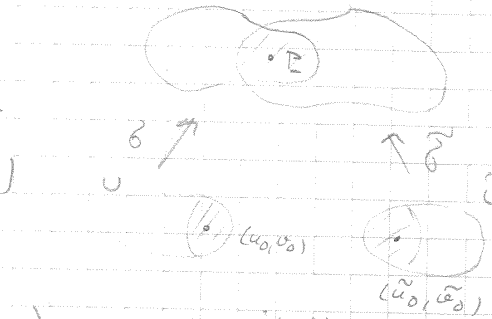 P
σ σ̃
U
(u₀, v₀)
(ũ₀, ṽ₀)